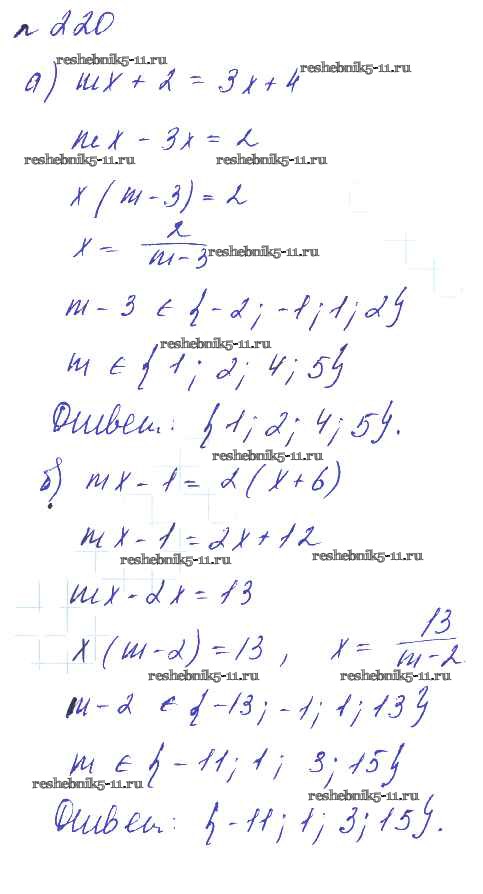 № 220
reshebnik5-11.ru
а) mx + 2 = 3x + 4 reshebnik5-11.ru
mx - 3x = 2
reshebnik5-11.ru reshebnik5-11.ru
x (m - 3) = 2
x = 2/(m - 3) reshebnik5-11.ru
m - 3 ∈ {-2; -1; 1; 2}
reshebnik5-11.ru
m ∈ {1; 2; 4; 5}
Ответ: {1; 2; 4; 5}.
reshebnik5-11.ru
б) mx - 1 = 2(x + 6)
mx - 1 = 2x + 12
reshebnik5-11.ru reshebnik5-11.ru
mx - 2x = 13
x (m - 2) = 13, x = 13/(m - 2)
reshebnik5-11.ru reshebnik5-11.ru
m - 2 ∈ {-13; -1; 1; 13}
m ∈ {-11; 1; 3; 15}
reshebnik5-11.ru reshebnik5-11.ru
Ответ: {-11; 1; 3; 15}.